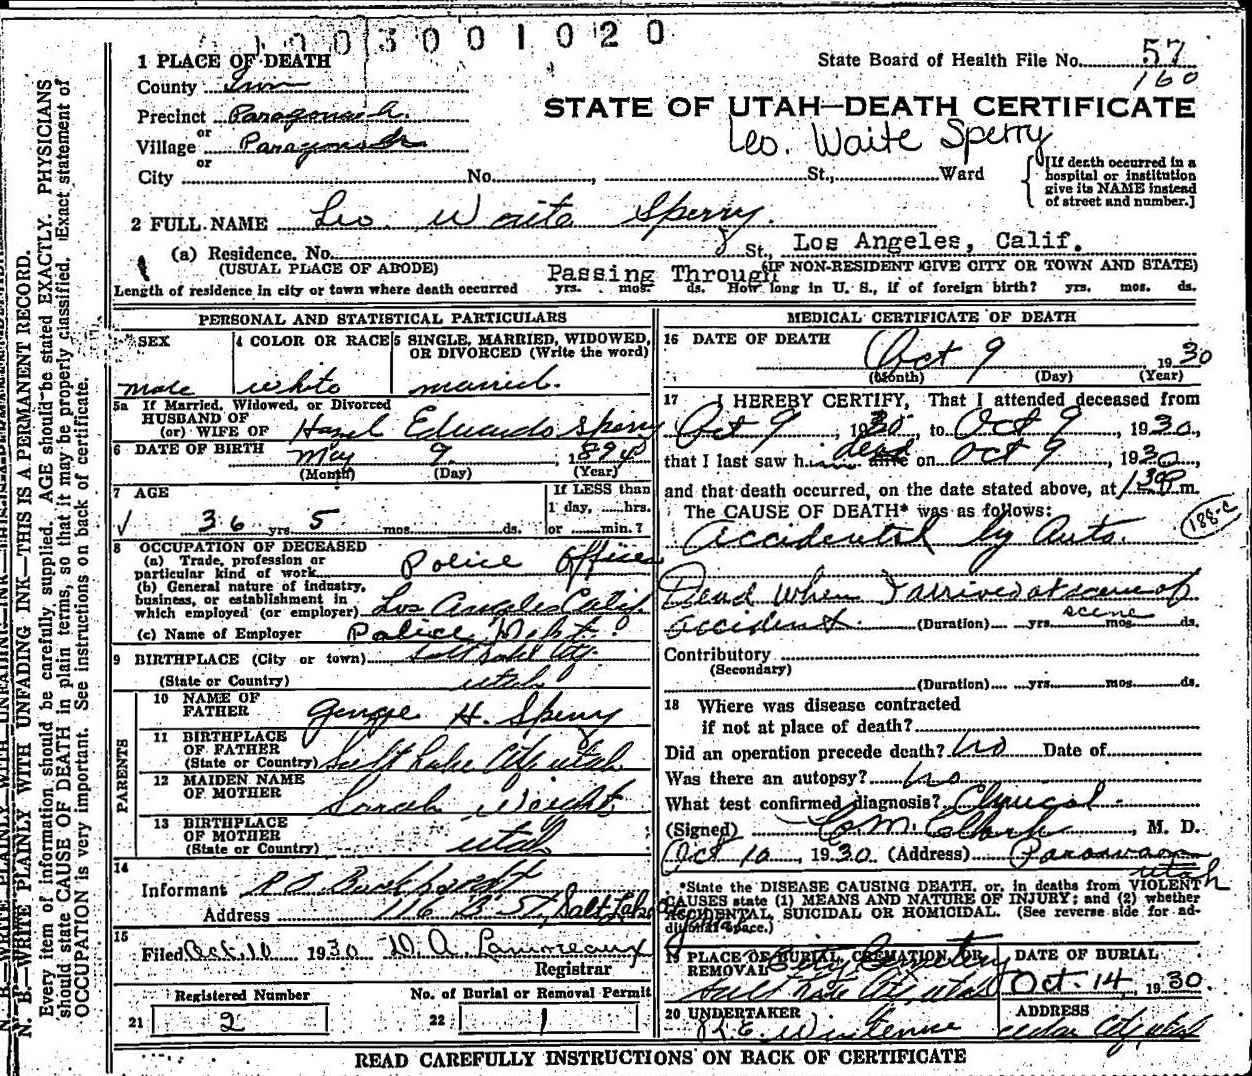 1003001020
1 PLACE OF DEATH
State Board of Health File No. 57
160
County Iron
STATE OF UTAH—DEATH CERTIFICATE
Precinct Paragonah.
or
Village Paragonah
Leo. Waite Sperry
or
City No. , St., Ward
[If death occurred in a hospital or institution give its NAME instead of street and number.]
2 FULL NAME Leo Waite Sperry.
(a) Residence. No. St., Los Angeles, Calif.
(USUAL PLACE OF ABODE) (IF NON-RESIDENT GIVE CITY OR TOWN AND STATE)
Passing Through
Length of residence in city or town where death occurred yrs. mos. ds. How long in U. S., if of foreign birth? yrs. mos. ds.
PERSONAL AND STATISTICAL PARTICULARS
3 SEX male
4 COLOR OR RACE white
5 SINGLE, MARRIED, WIDOWED, OR DIVORCED (Write the word) married.
5a If Married, Widowed, or Divorced
HUSBAND OF
(or) WIFE OF Hazel Edwards Sperry
6 DATE OF BIRTH May 9. , 1894
(Month) (Day) (Year)
7 AGE
36 yrs. 5 mos. ds.
If LESS than 1 day, hrs. or min.?
8 OCCUPATION OF DECEASED
(a) Trade, profession or particular kind of work Police Officer
(b) General nature of industry, business, or establishment in which employed (or employer) Los Angeles Calif.
(c) Name of Employer Police Dept.
9 BIRTHPLACE (City or town) Salt Lake City.
(State or Country) Utah
PARENTS
10 NAME OF FATHER George H. Sperry
11 BIRTHPLACE OF FATHER (State or Country) Salt Lake City Utah
12 MAIDEN NAME OF MOTHER Sarah
13 BIRTHPLACE OF MOTHER (State or Country) Utah
14
Informant
Address 116 St, Salt Lake
15
Filed Oct. 10 1930 D. A. Lamoreaux
Registrar
Registered Number
21 2
No. of Burial or Removal Permit
22 1
MEDICAL CERTIFICATE OF DEATH
16 DATE OF DEATH
Oct 9 1930
(Month) (Day) (Year)
17 I HEREBY CERTIFY, That I attended deceased from
Oct 9, 1930, to Oct 9, 1930,
that I last saw him alive dead on Oct 9, 1930,
and that death occurred, on the date stated above, at 130P m.
The CAUSE OF DEATH* was as follows:
188-c
Accidental by Auto.
Dead When I arrived at scene of
scene
accident. (Duration) yrs. mos. ds.
Contributory
(Secondary)
(Duration) yrs. mos. ds.
18 Where was disease contracted
if not at place of death?
Did an operation precede death? No Date of
Was there an autopsy? No
What test confirmed diagnosis? Clinical
(Signed) M. D.
Oct 10, 1930. (Address) Parowan
Utah
*State the DISEASE CAUSING DEATH, or, in deaths from VIOLENT
CAUSES state (1) MEANS AND NATURE OF INJURY; and (2) whether
ACCIDENTAL, SUICIDAL OR HOMICIDAL. (See reverse side for ad-
ditional space.)
19 PLACE OF BURIAL, CREMATION, OR REMOVAL City Cemetery
Salt Lake City, Utah
DATE OF BURIAL
Oct. 14, 1930.
20 UNDERTAKER
ADDRESS
Cedar City, Utah
READ CAREFULLY INSTRUCTIONS ON BACK OF CERTIFICATE
N. B.—WRITE PLAINLY WITH UNFADING INK—THIS IS A PERMANENT RECORD.
Every item of information should be carefully supplied. AGE should be stated EXACTLY. PHYSICIANS
should state CAUSE OF DEATH in plain terms, so that it may be properly classified. Exact statement of
OCCUPATION is very important. See instructions on back of certificate.